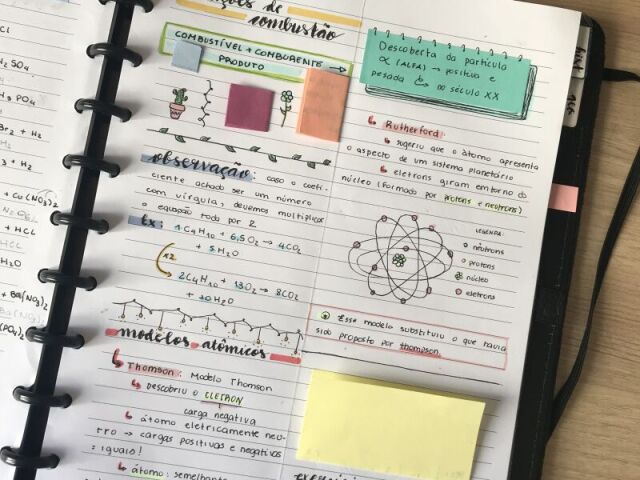 ções de
combustão
COMBUSTÍVEL + COMBURENTE →
PRODUTO
observação: caso o coefi-
ciente achado ser um número
com vírgula, devemos multiplicar
a equação toda por 2
Ex: 1C4H10 + 6,5O2 → 4CO2
+ 5H2O
x2
2C4H10 + 13O2 → 8CO2
+ 10H2O
modelos atômicos
Thomson: Modelo Thomson
Descobriu o ELETRON
carga negativa
átomo eletricamente neu-
tro → cargas positivas e negativas
= iguais!
átomo: semelhante
Descoberta da partícula
α (ALFA) → positiva e
pesada no século XX
Rutherford:
sugeriu que o átomo apresenta
o aspecto de um sistema planetário
eletrons giram em torno do
núcleo (formado por protons e neutrons)
LEGENDA:
nêutrons
protons
núcleo
eletrons
Esse modelo substituiu o que havia
sido proposto por thompson.
H2SO4
H3PO4
Br2 + H2
+ HCl
+ Cu(NO3)2
HCl
H2O
+ Ba(NO3)2
(PO4)2